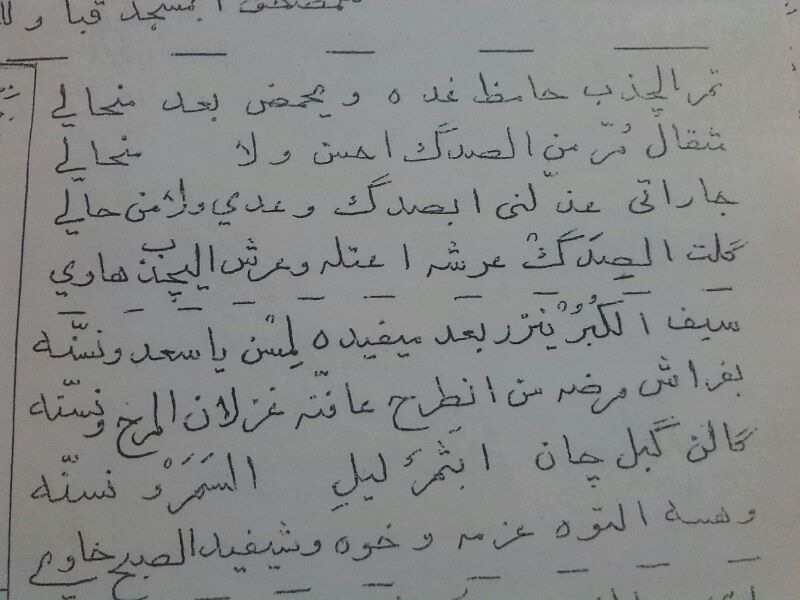 المسجد قبا ولا
تمر الچذب حامظ غده ويحمض بعد منحالي
مثقال مُرّ من الصدگ احسن ولا منحالي
جاراتي عذلنى ابصدگ وعدي ولامن حالي
گلت الصِدَگْ عرشه اعتله وعرش اليچذب هاوي
سيف الكُبُرْ ينزر بعد ميفيده لِمْسْن يا سعد ونسَّنه
بفراش مرضه من انطرح عافتَّه غزلان المرح ونسَّنه
گالن گبل چان ابثمرْ ليلِ السَمَرْ ونسنّه
وهسه التوه عزمه وخوه وشيفيد الصبح خاوي